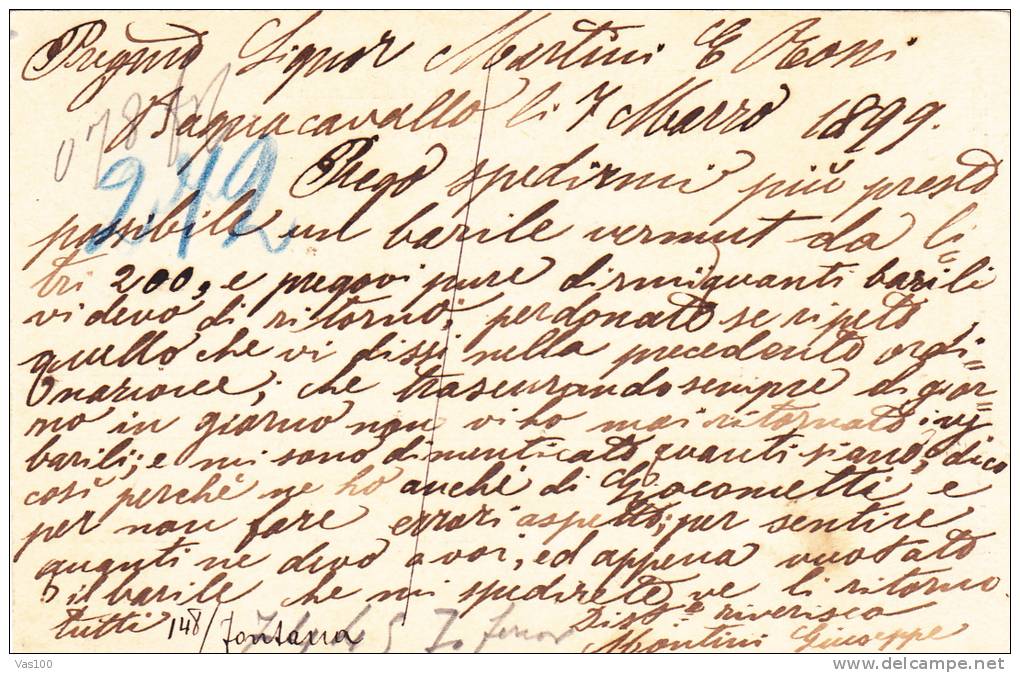 Pregmo Signor Martini E Rossi
Bagnacavallo li 7 Marzo 1899.
242
Prego spedirmi più presto
possibile un barile vermut da li=
tri 200, e pregovi pure dirmi quanti barili
vi devo di ritorno; perdonate se ripeto
quello che vi dissi nella precedente ordi=
nazione; che trascurando sempre di gior=
no in giorno non vi ho mai ritornato i vs
barili; e mi sono dimenticato quanti siano, dico
così perché ne ho anche di Giacometti e
per non fare errori aspetto, per sentire
quanti ne devo a voi, ed appena vuotato
il barile che mi spedirete ve li ritorno
tutti
Distte riverisco
Montini Giuseppe
148/Fontana
Vas100
delcampe.net